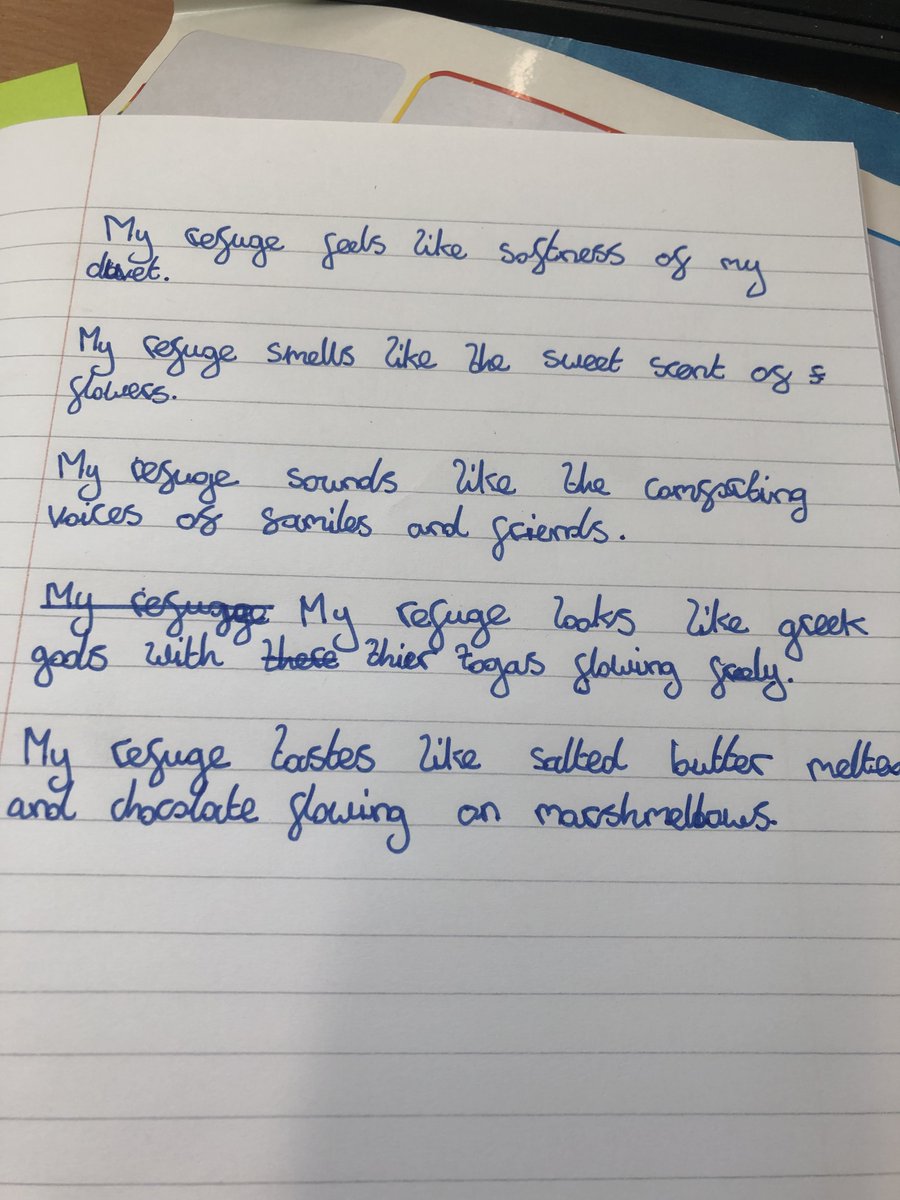 My refuge feels like softness of my
duvet.
My refuge smells like the sweet scent of s
flowers.
My refuge sounds like the comforting
voices of familes and friends.
My refugge My refuge looks like greek
gods with there thier togas flowing freely.
My refuge tastes like salted butter melted
and chocolate flowing on marshmellows.